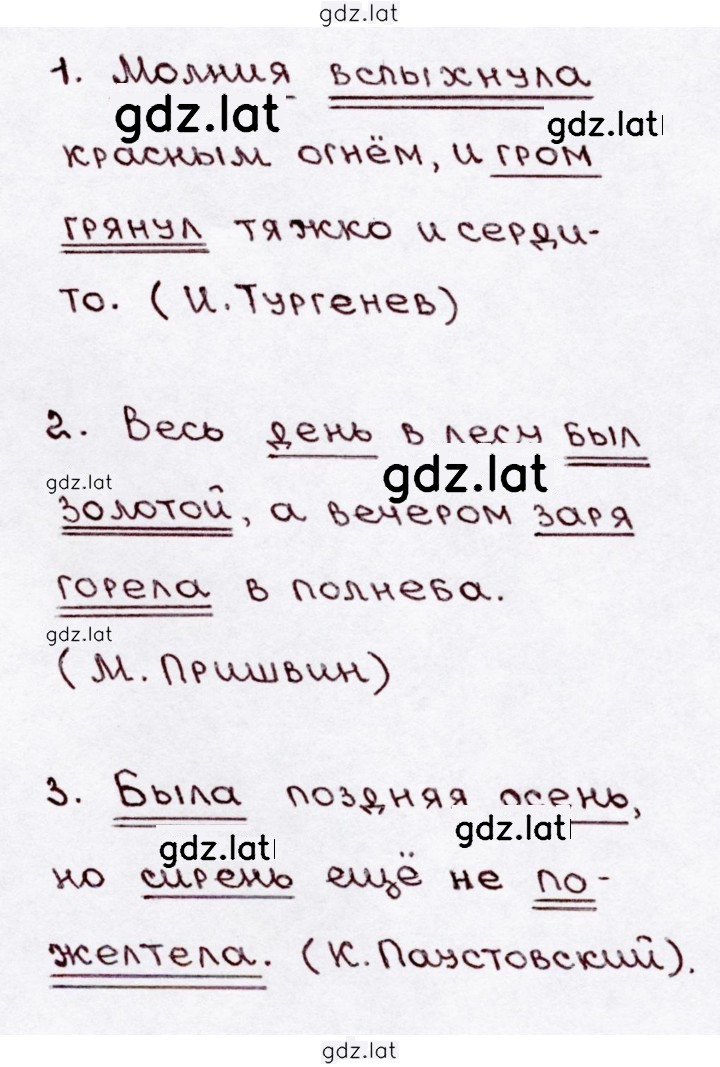 gdz.lat
1. Молния вспыхнула
gdz.lat
gdz.lat
красным огнём, и гром
грянул тяжко и серди-
то. (И. Тургенев)
2. Весь день в лесу был
gdz.lat
gdz.lat
золотой, а вечером заря
горела в полнеба.
gdz.lat
(М. Пришвин)
3. Была поздняя осень,
gdz.lat
gdz.lat
но сирень ещё не по-
желтела. (К. Паустовский).
gdz.lat